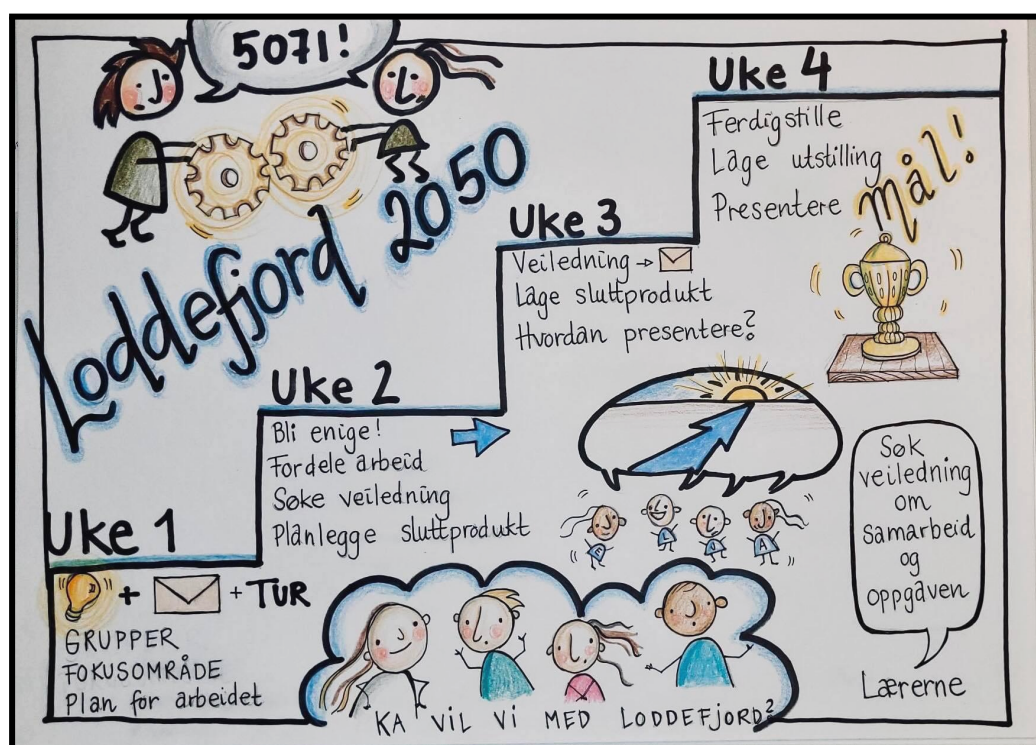 5071!
Loddefjord 2050
Uke 1
+ + TUR
GRUPPER
FOKUSOMRÅDE
Plan for arbeidet
Uke 2
Bli enige!
Fordele arbeid
Søke veiledning
Planlegge sluttprodukt
Uke 3
Veiledning →
Lage sluttprodukt
Hvordan presentere?
Uke 4
Ferdigstille
Lage utstilling
Presentere
Mål!
E L S A
KA VIL VI MED LODDEFJORD?
Søk
veiledning
om
samarbeid
og
oppgaven
Lærerne